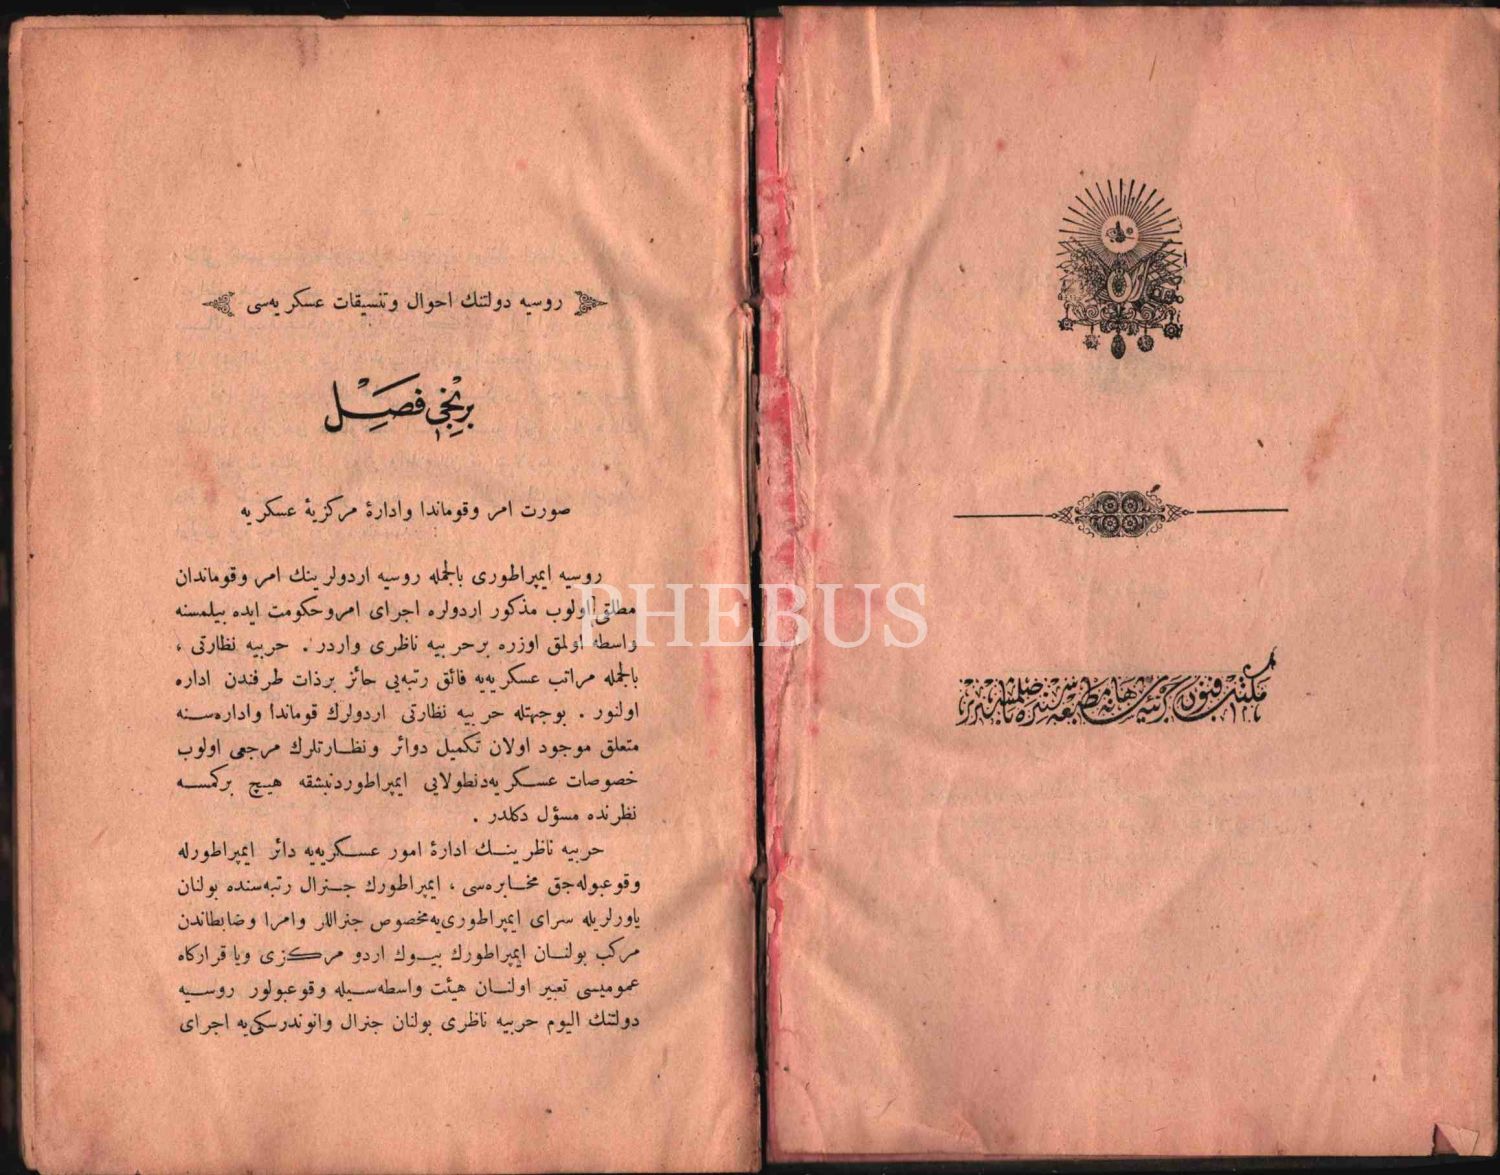 مكتب فنون حربيۀ شاهانه مطبعه سنده طبع
روسيه دولتنك احوال وتنسيقات عسكريه‌سى
برنجى فصل
صورت امر وقوماندا وادارۀ مركزيۀ عسكريه
روسيه ايمپراطورى بالجمله روسيه اردولرينك امر وقوماندان
مطلقى اولوب مذكور اردولره اجراى امر وحكومت ايده بيلمسنه
واسطه اولمق اوزره بر حربيه ناظرى واردر . حربيه نظارتى ،
بالجمله مراتب عسكريه‌يه فائق رتبه‌يى حائز برذات طرفندن اداره
اولنور . بوجهتله حربيه نظارتى اردولرك قوماندا واداره‌سنه
متعلق موجود اولان تكميل دوائر ونظارتلرك مرجعى اولوب
خصوصات عسكريه‌دنطولايى ايمپراطوردنبشقه هيچ بركمسه
نظرنده مسؤل دكلدر .
حربيه ناظرينك ادارۀ امور عسكريه‌يه دائر ايمپراطورله
وقوعبوله‌جق مخابره‌سى ، ايمپراطورك جنرال رتبه‌سنده بولنان
ياورلريله سراى ايمپراطورى‌يه مخصوص جنراللر وامرا وضابطاندن
مركب بولنان ايمپراطورك بيوك اردو مركزى ويا قراركاه
عموميسى تعبير اولنان هيئت واسطه‌سيله وقوعبولور روسيه
دولتنك اليوم حربيه ناظرى بولنان جنرال وانوندرسكى‌يه اجراى
PHEBUS